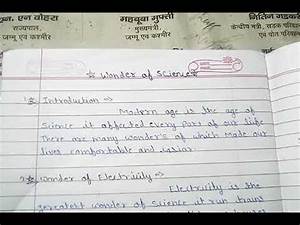 एन. एन वोहरा
राज्यपाल,
जम्मू एवं कश्मीर
महबूबा मुफ्ती
मुख्यमंत्री,
जम्मू एवं कश्मीर
नितिन गडकरी
केन्द्रीय मंत्री, सड़क परिवहन
एवं पोत परिवहन
Wonder of Science
Introduction →
Modern age is the age of
Science it affected every part of our life
There are many wonder's of which made our
lives comfortable and easier
Wonder of Electricity →
Electricity is the
greatest wonder of science it run trains